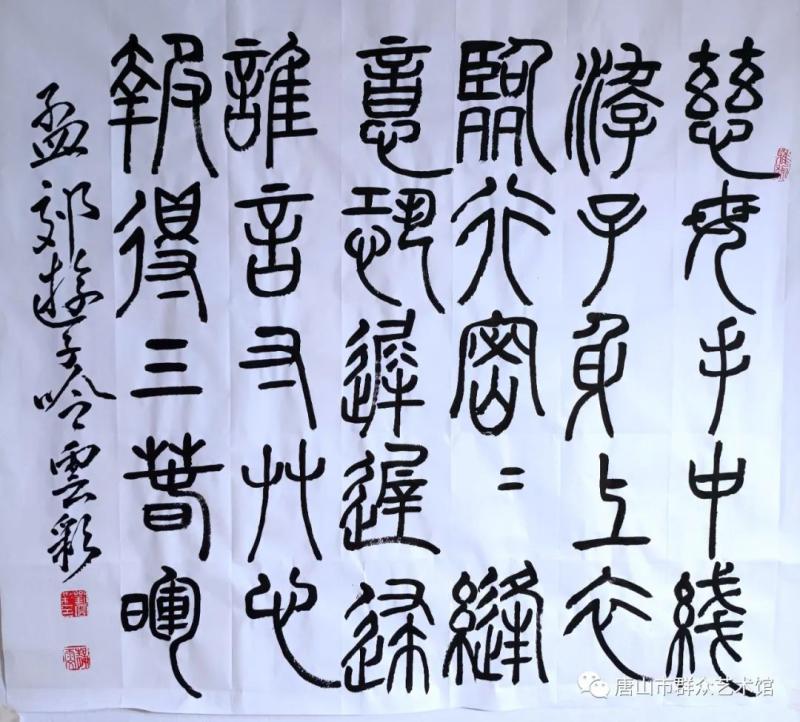 慈母手中线
游子身上衣
临行密〻缝
意恐遲遲歸
誰言寸艸心
報得三春暉
孟郊遊子吟雲彩
唐山市群众艺术馆